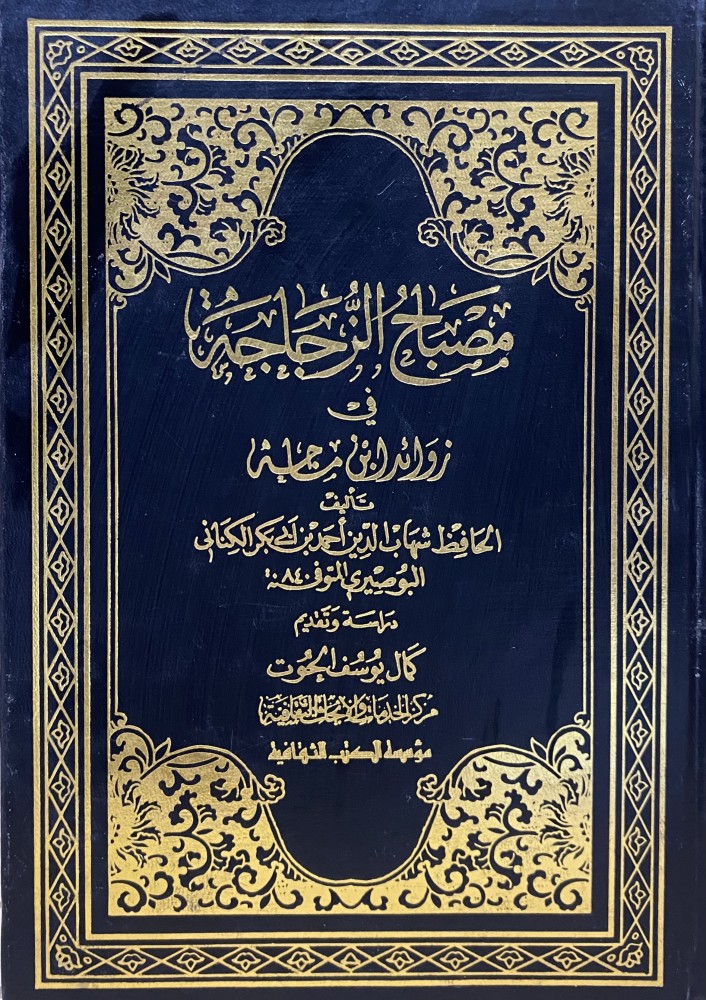 مصباح الزُّجاجة
في
زوائد ابن ماجه
تأليف
الحافظ شهاب الدين أحمد بن أبي بكر الكناني
البوصيري المتوفى سنة ٨٤٠
دراسة وتقديم
كمال يوسف الحوت
مركز الخدمات والأبحاث الثقافية
مؤسسة الكتب الثقافية